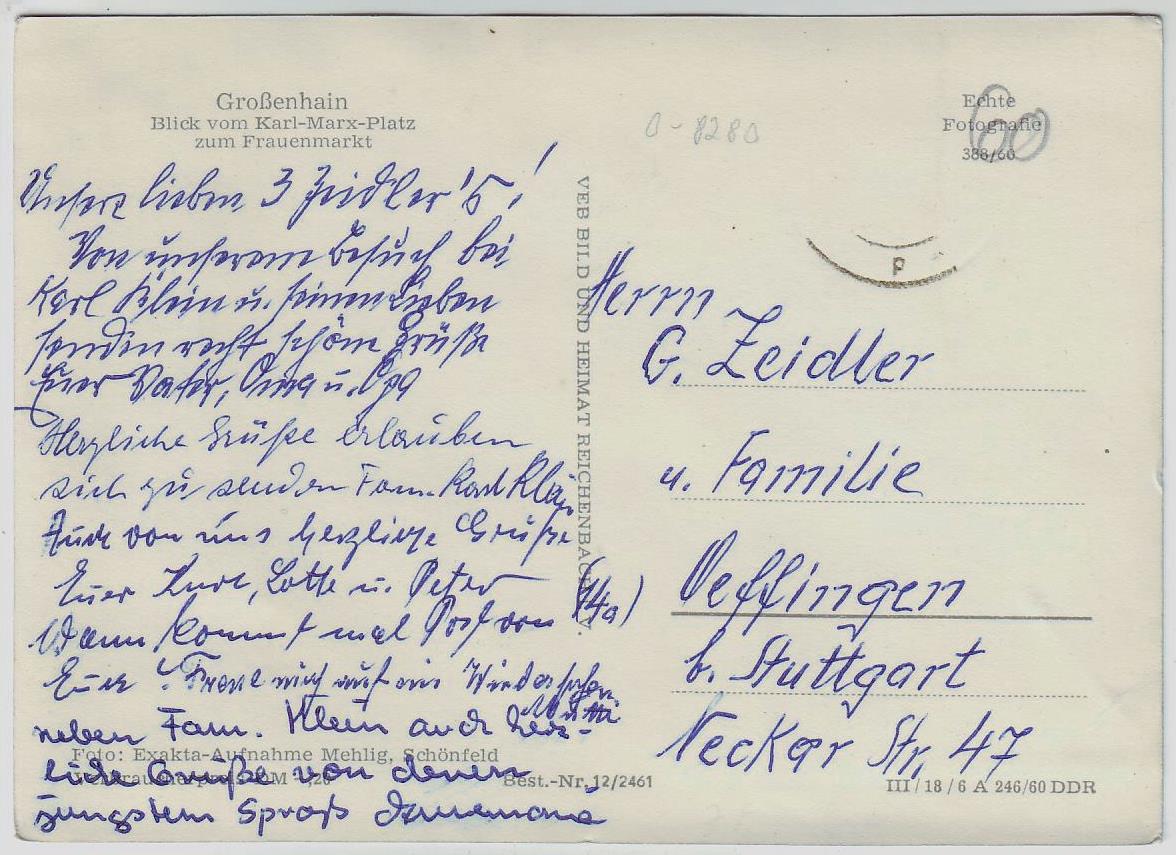 Großenhain
Blick vom Karl-Marx-Platz
zum Frauenmarkt
Unsere lieben 3 Zeidler's!
Von unserem Besuch bei
Karl Klein u. seinen Lieben
senden recht schöne Grüße
Euer Vater, Oma u. Opa
Herzliche Grüße erlauben
sich zu senden Fam. Karl Klein
Auch von uns herzliche Grüße
Euer Kurt, Lotte u. Peter
Wann kommt mal Post von
Euch? Freue mich auf ein Wiedersehen
Mutti
neben Fam. Klein auch herz-
liche Grüße von deren
jüngstem Sproß
Foto: Exakta-Aufnahme Mehlig, Schönfeld
Best.-Nr. 12/2461
VEB BILD UND HEIMAT REICHENBACH I. V.
0-8280
Echte
Fotografie
388/60
60
P
Herrn
G. Zeidler
u. Familie
(14a) Oeffingen
b. Stuttgart
Neckar Str. 47
III/18/6 A 246/60 DDR